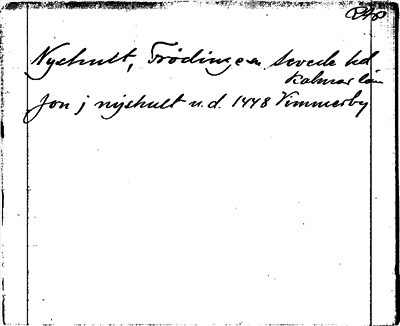 Nyshult, Frödinge sn. Sevede hd
Kalmar län
Jon j nyshult u.d. 1448 Vimmerby